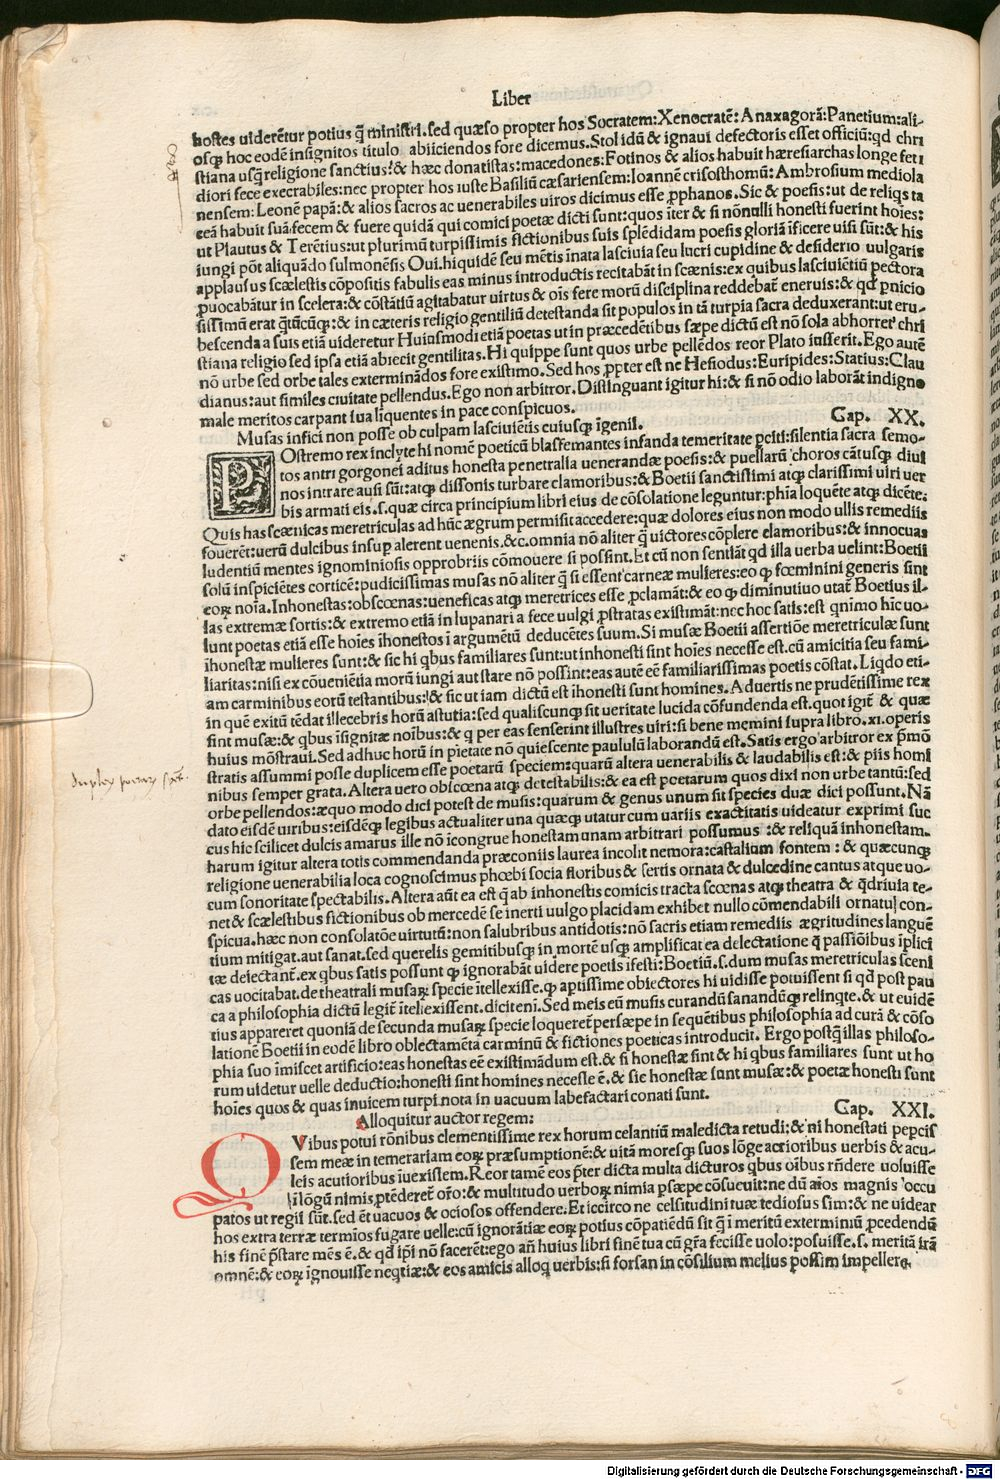 Liber
hostes uiderẽtur potius q̃ ministri. sed quæso propter hos Socratem: Xenocratẽ: Anaxagorã: Panetium: ali-
osq; hoc eodẽ insignitos titulo abiiciendos fore dicemus. Stolidũ & ignaui defectoris esset officiũ: qd chri
stiana usq̃ religione sanctius? & hæc donatistas: macedones: Fotinos & alios habuit hæresiarchas longe feti
diori fece execrabiles: nec propter hos iuste Basiliũ cæsariensem: Ioannẽ crisosthomũ: Ambrosium mediola
nensem: Leonẽ papã: & alios sacros ac uenerabiles uiros dicimus esse ꝓphanos. Sic & poesis: ut de reliqs ta
ceã habuit suã fecem & fuere quidã qui comici poetæ dicti sunt: quos ĩter & si nõnulli honesti fuerint hoĩes:
ut Plautus & Terẽtius: ut plurimũ turpissimis fictionibus suis splẽdidam poesis gloriã ĩficere uisi sũt: & his
iungi põt aliquãdo sulmonẽsis Oui. hi quidẽ seu mẽtis ĩnata lasciuia seu lucri cupidine & desiderio uulgaris
applausus scælestis cõpositis fabulis eas minus introductis recitabãt in scænis: ex quibus lasciuiẽtiũ pectora
ꝓuocabãtur in scelera: & cõstãtiũ agitabatur uirtus & oĩs fere morũ disciplina reddebat̃ eneruis: & qd ꝑnicio
sissimũ erat q̃tũcũq;: & in cæteris religio gentiliũ detestanda sit populos in tã turpia sacra deduxerant: ut eru-
bescenda a suis etiã uideretur Huiusmodi etiã poetas ut in præcedẽtibus sæpe dictũ est nõ sola abhorret chri
stiana religio sed ipsa etiã abiecit gentilitas. Hi quippe sunt quos urbe pellẽdos reor Plato iusserit. Ego autẽ
nõ urbe sed orbe tales exterminãdos fore existimo. Sed hos ꝓpter est ne Hesiodus: Euripides: Statius: Clau
dianus: aut similes ciuitate pellendus. Ego non arbitror. Distinguant igitur hi: & si nõ odio laborãt indigno
male meritos carpant sua liquentes in pace conspicuos.
Musas infici non posse ob culpam lasciuiẽtis cuiusq; ĩgenii. Cap. XX.
POstremo rex inclyte hi nomẽ poeticũ blassemantes infanda temeritate ꝑciti: silentia sacra semo-
tos antri gorgonei aditus honesta penetralia uenerandæ poesis: & puellarũ choros cãtusq; diui
nos intrare ausi sũt: atq; dissonis turbare clamoribus: & Boetii sanctissimi atq; clarissimi uiri uer
bis armati eis. s. quæ circa principium libri eius de cõsolatione leguntur: phia loquẽte atq; dicẽte:
Quis has scæenicas meretriculas ad hũc ægrum permisit accedere: quæ dolores eius non modo ullis remediis
fouerẽt: uerũ dulcibus insuꝑ alerent uenenis. &c. omnia nõ aliter q̃ uictores cõplere clamoribus: & innocuas
ludentiũ mentes ignominiosis opprobriis cõmouere si possint. Et cũ non sentiãt qd illa uerba uelint: Boetii
solũ inspiciẽtes corticẽ: pudicissimas musas nõ aliter q̃ si essent carneæ mulieres: eo ꝙ fœminini generis sint
eoꝝ noĩa. Inhonestas: obscœnas: ueneficas atq; meretrices esse ꝓclamãt: & eo ꝙ diminutiuo utat̃ Boetius il-
las extremæ sortis: & extremo etiã in lupanari a fece uulgi ꝓstratas existimãt: nec hoc satis: est qnimo hĩc uo-
lunt poetas etiã esse hoĩes ĩhonestos ĩ argumẽtũ deducẽtes suum. Si musæ Boetii assertiõe meretriculæ sunt
ĩhonestæ mulieres sunt: & sic hi qbus familiares sunt: ut inhonesti sint hoĩes necesse est. cũ amicitia seu fami-
liaritas: nisi ex cõueniẽtia morũ iungi aut stare nõ possint: eas autẽ eẽ familiarissimas poetis cõstat. Liqdo eti-
am carminibus eorũ testantibus: & sic ut iam dictũ est ĩhonesti sunt homines. Aduertis ne prudẽtissime rex
in quẽ exitũ tẽdat illecebris horũ astutia: sed qualiscunq; sit ueritate lucida cõfundenda est. quot igit̃ & quæ
sint musæ: & qbus ĩsignitæ noĩbus: & q per eas senserint illustres uiri: si bene memini supra libro. xi. operis
huius mõstraui. Sed adhuc horũ in pietate nõ quiescente paululũ laborandũ est. Satis ergo arbitror ex p̃mõ
stratis assummi posse duplicem esse poetarũ speciem: quarũ altera uenerabilis & laudabilis est: & piis homi
nibus semper grata. Altera uero obscœna atq; detestabilis: & ea est poetarum quos dixi non urbe tantũ: sed
orbe pellendos: æquo modo dici potest de musis: quarum & genus unum sit species duæ dici possunt. Nã
dato eisdẽ uiribus: eisdẽq; legibus actualiter una quæq; utatur cum uariis exactitatis uideatur exprimi suc
cus hic scilicet dulcis amarus ille nõ icongrue honestam unam arbitrari possumus: & reliquã inhonestam.
harum igitur altera totis commendanda præconiis laurea incolit nemora: castalium fontem: & quæcunq;
religione uenerabilia loca cognoscimus phœbi socia floribus & sertis ornata & dulcedine cantus atque uo-
cum sonoritate spectabilis. Altera aũt ea est q̃ ab inhonestis comicis tracta scœnas atq; theatra & q̃driuia te-
net & scælestibus fictionibus ob mercedẽ se inerti uulgo placidam exhibet nullo cõmendabili ornatu con-
spicua. hæc non consolatõe uirtutũ: non salubribus antidotis: nõ sacris etiam remediis ægritudines languẽ
tium mitigat. aut sanat. sed querelis gemitibusq; in mortẽ usq; amplificat ea delectatione q̃ passiõibus ĩplici
tæ deiectant̃. ex qbus satis possunt ꝙ ignorabãt uidere poetis ĩfesti: Boetiũ. s. dum musas meretriculas sceni
cas uocitabat. de theatrali musaꝝ specie ĩtellexisse. ꝙ aptissime obiectores hi uidisse potuissent si qd post pau
ca a philosophia dictũ legit̃ ĩtellexissent. dicit enĩ. Sed meis eũ musis curandũ sanandũq; relinqte. & ut euidẽ
tius appareret quoniã de secunda musaꝝ specie loqueret̃ persæpe in sequẽtibus philosophia ad curã & cõso
lationẽ Boetii in eodẽ libro oblectamẽta carminũ & fictiones poeticas introducit. Ergo postq̃ illas philoso-
phia suo ĩmiscet artificio: eas honestas eẽ existimãdum est. & si honestæ sint & hi qbus familiares sunt ut ho
rum uidetur uelle deductio: honesti sint homines necesse ẽ. & sic honestæ sunt musæ: & poetæ honesti sunt
hoĩes quos & quas inuicem turpi nota in uacuum labefactari conati sunt.
Alloquitur auctor regem: Cap. XXI.
QVibus potui rõnibus clementissime rex horum celantiũ maledicta retudi: & ni honestati peꝑcis
sem meæ in temerariam eoꝝ præsumptionẽ: & uitã moresq; suos lõge acrioribus uerbis & acu-
leis acutioribus ĩuexissem. Reor tamẽ eos p̃ter dicta multa dicturos qbus oĩbus rñdere uoluisse
ĩ lõgũ nimis ptẽderet̃ orõ: & multitudo uerboꝝ nimia psæpe cõsueuit: ne dũ aĩos magnis occu
patos ut regii sũt. sed ẽt uacuos & ociosos offendere. Et iccirco ne celsitudini tuæ tediosus sim: & ne uidear
hos extra terræ termĩos fugare uelle: cũ ignorãtiæ eoꝝ potius cõpatiẽdũ sit q̃ ĩ meritũ exterminiũ ꝓcedendũ
his finẽ p̃stare mẽs ẽ. & qd ipĩ nõ facerẽt: ego añ huius libri finẽ tua cũ gr̃a fecisse uolo: posuisse. s. meritã irã
omnẽ: & eoꝝ ĩgnouisse neqtiæ: & eos amicis alloq uerbis: si forsan in cõsilium melius possim impellere.
duplex poetarum
Digitalisierung gefördert durch die Deutsche Forschungsgemeinschaft - DFG